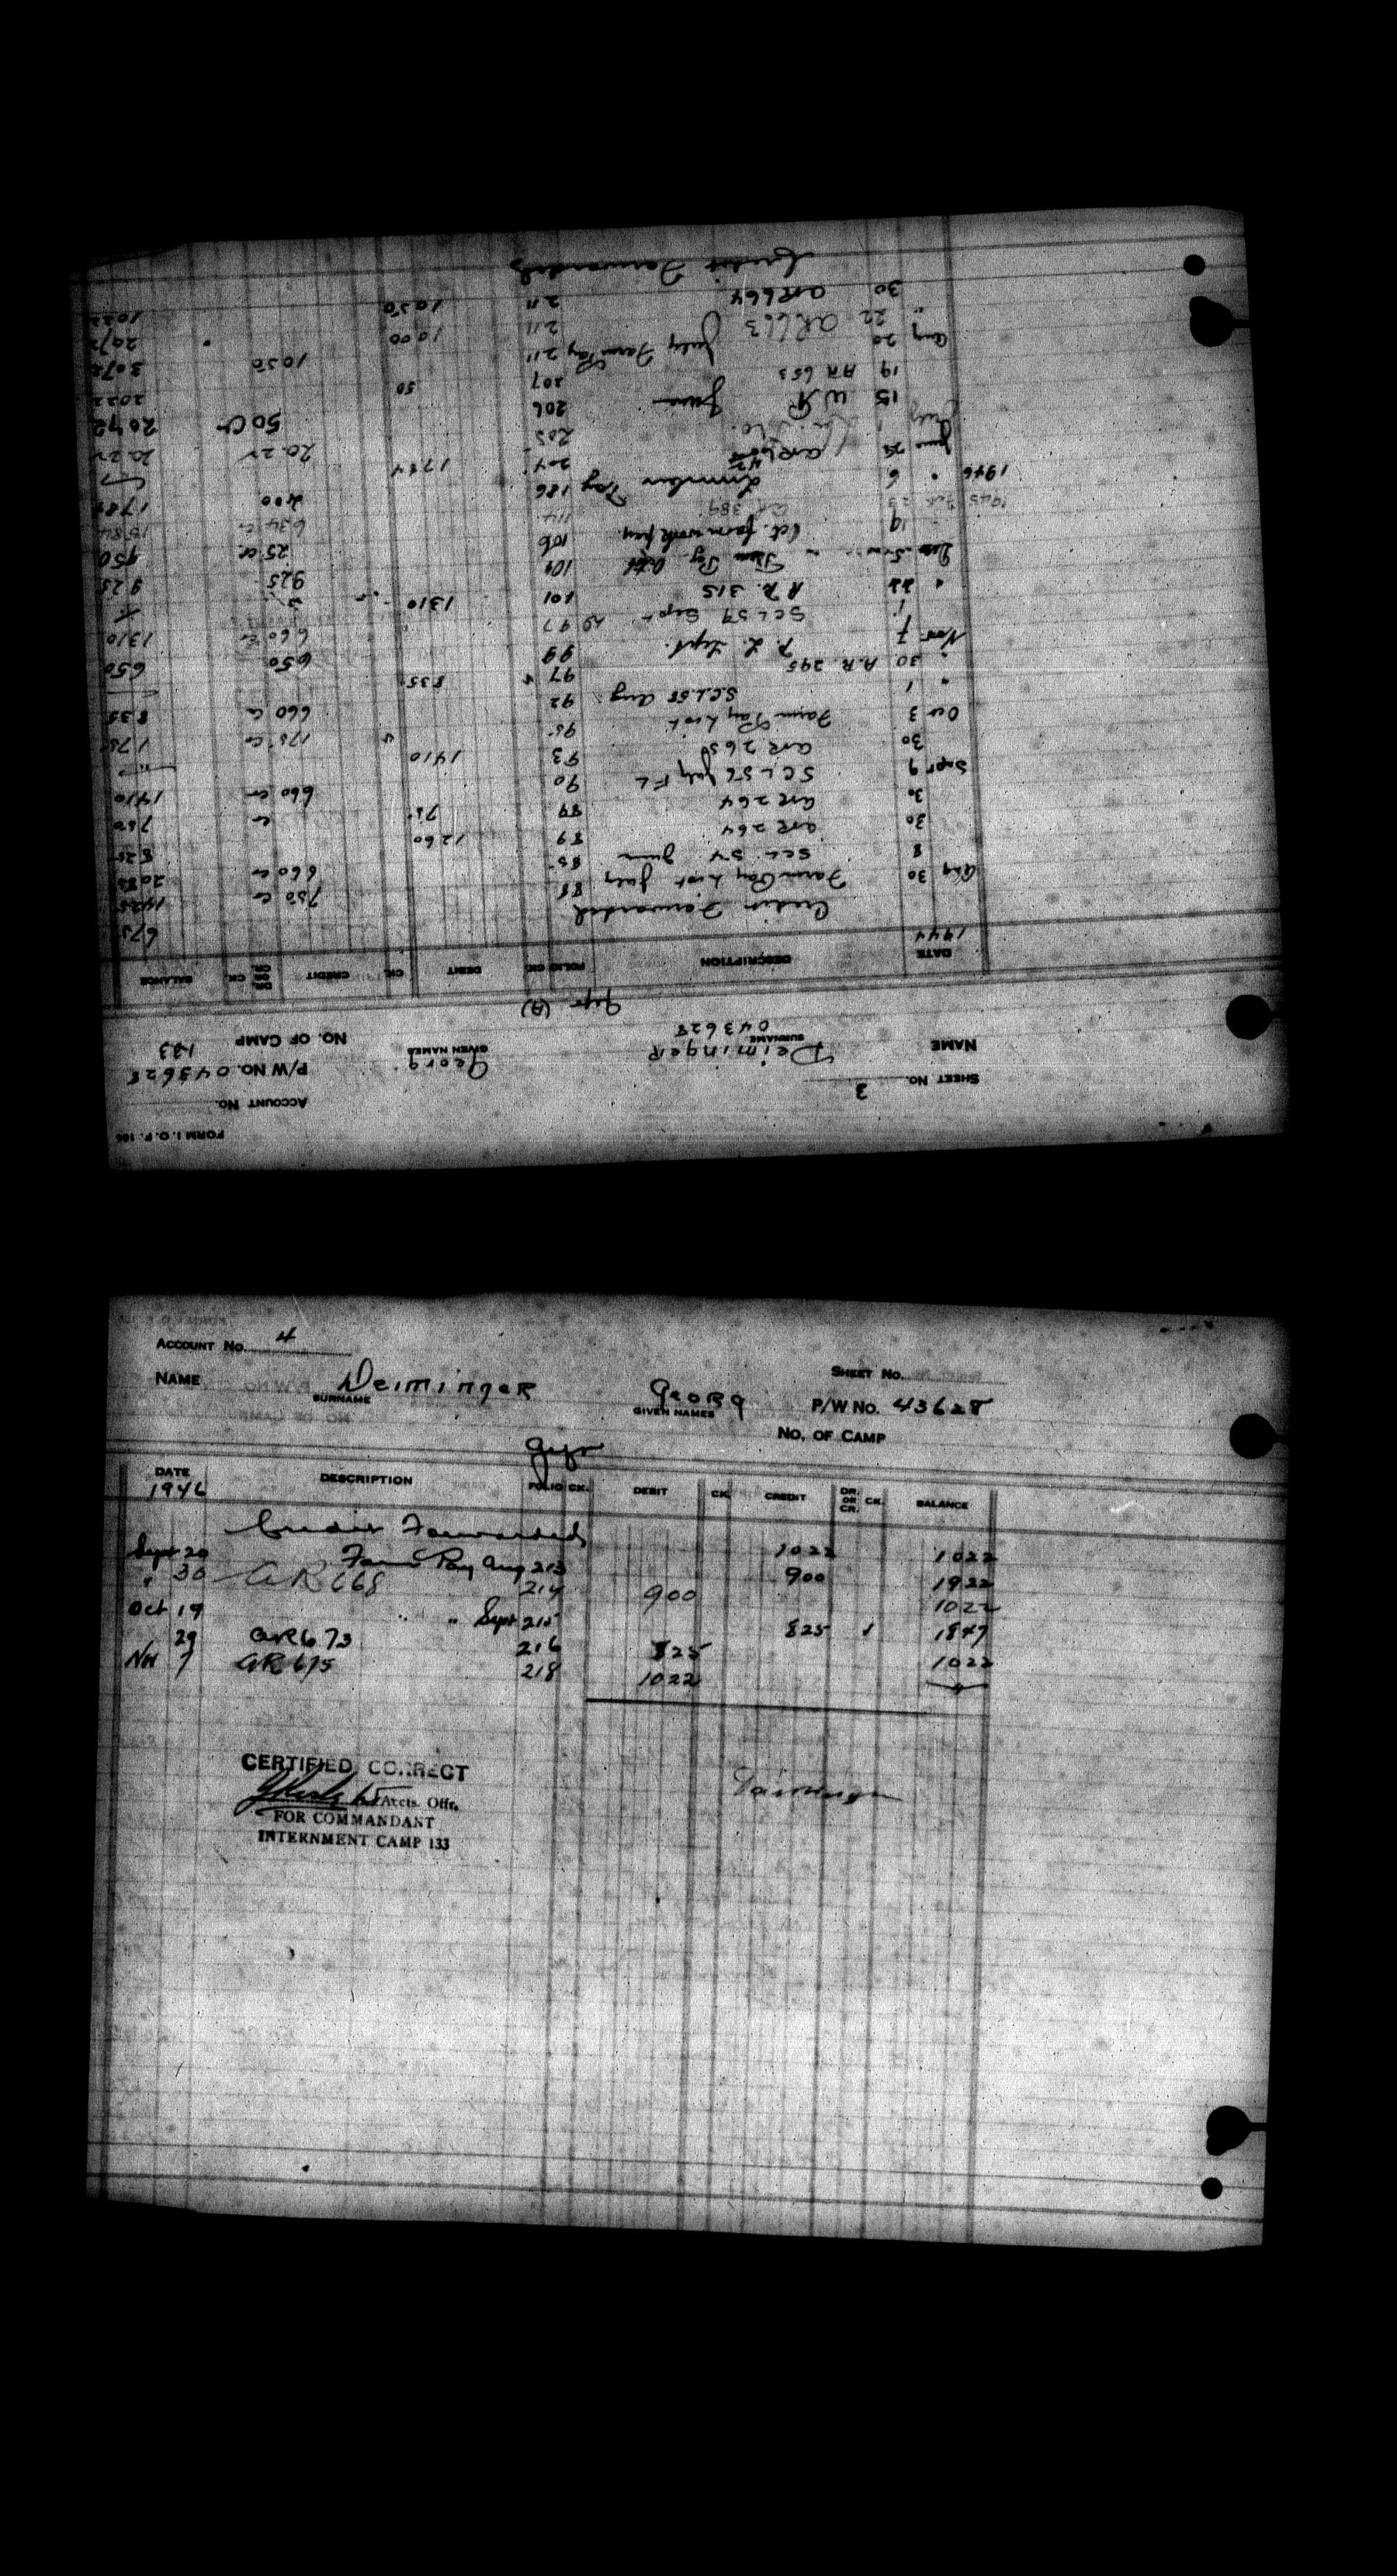 FORM I.O.P. 106
ACCOUNT NO.
SHEET NO. 3
P/W NO. 043628
NAME Deiminger Georg
SURNAME GIVEN NAMES
043628
NO. OF CAMP 133
Gefr (A)
DATE DESCRIPTION FOLIO CK. DEBIT CK. CREDIT DR. OR CR. CK. BALANCE
1944
Credit Forwarded 675
Aug 30 Farm Pay List July 88 750 Cr 1425
8 SCL 54 June 85 660 Cr 2085
30 AR 264 89 1260 825
30 AR 264 89 75 Cr 750
Sept 9 SCL 56 July F L 90 660 Cr 1410
30 AR 265 93 1410
Oct 3 Farm Pay List 95 175 Cr 175
" 1 SCL 58 Aug 92 660 Cr 835
" 30 A.R. 295 97 835
Nov 7 P. L. Sept. 99 650 650
1 SCL 59 Sept 97 660 Cr 1310
" 22 A.R. 315 101 1310
Dec 5 Farm Pay Oct 104 925 925
19 Cd. farm work pay 106 25 Cr 950
1945 Feb 23 AR 389 114 634 Cr 1584
1946 " 6 Lumber Pay 186 200 1784
June 25 AR 642 204 1784
July 1 203 20.22 20.22
15 W.P. June 206 50 Cr 2072
19 AR 653 207 50 2022
Aug 20 July Farm Pay 211 1050 3072
" 22 AR 663 211 1000 2072
30 AR 664 211 1050 1022
Credit Forwarded
ACCOUNT NO. 4
SHEET NO.
NAME Deiminger Georg P/W NO. 43628
SURNAME GIVEN NAMES
NO. OF CAMP
Gefr
DATE DESCRIPTION FOLIO CK. DEBIT CK. CREDIT DR. OR CR. CK. BALANCE
1946
Credit Forwarded 1022 1022
Sept 20 Farm Pay Aug 213 900 1922
" 30 AR 668 214 900 1022
Oct 19 " " Sept 215 825 1847
29 AR 673 216 825 1022
Nov 7 AR 675 218 1022
CERTIFIED CORRECT
Accts. Offr.
FOR COMMANDANT
INTERNMENT CAMP 133